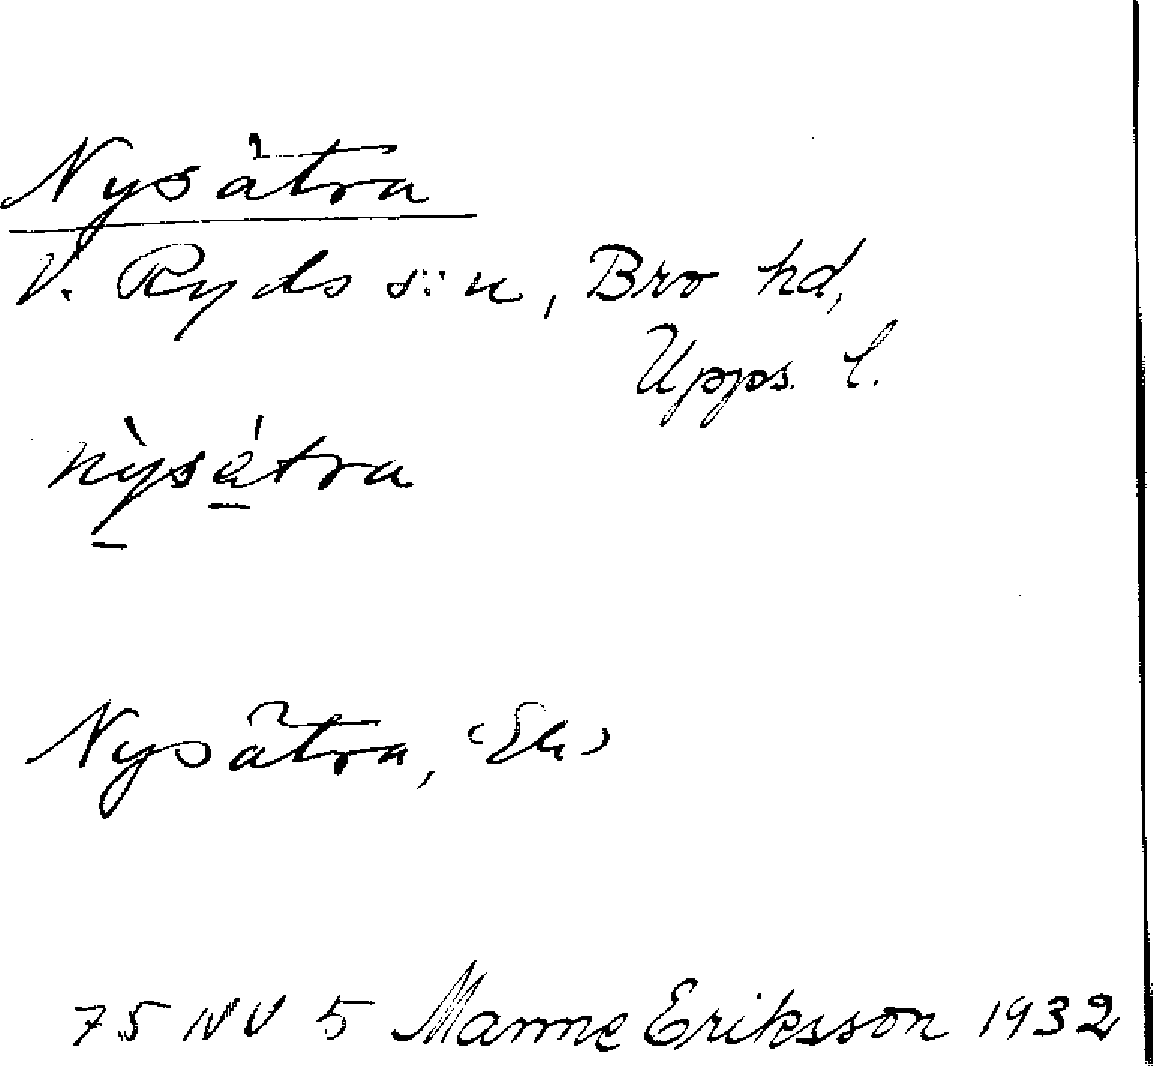 Nysätra
V. Ryds s:n, Bro hd,
Upps. l.
nỳsátra
Nysätra, (Ek)
75 NV 5 Manne Eriksson 1932